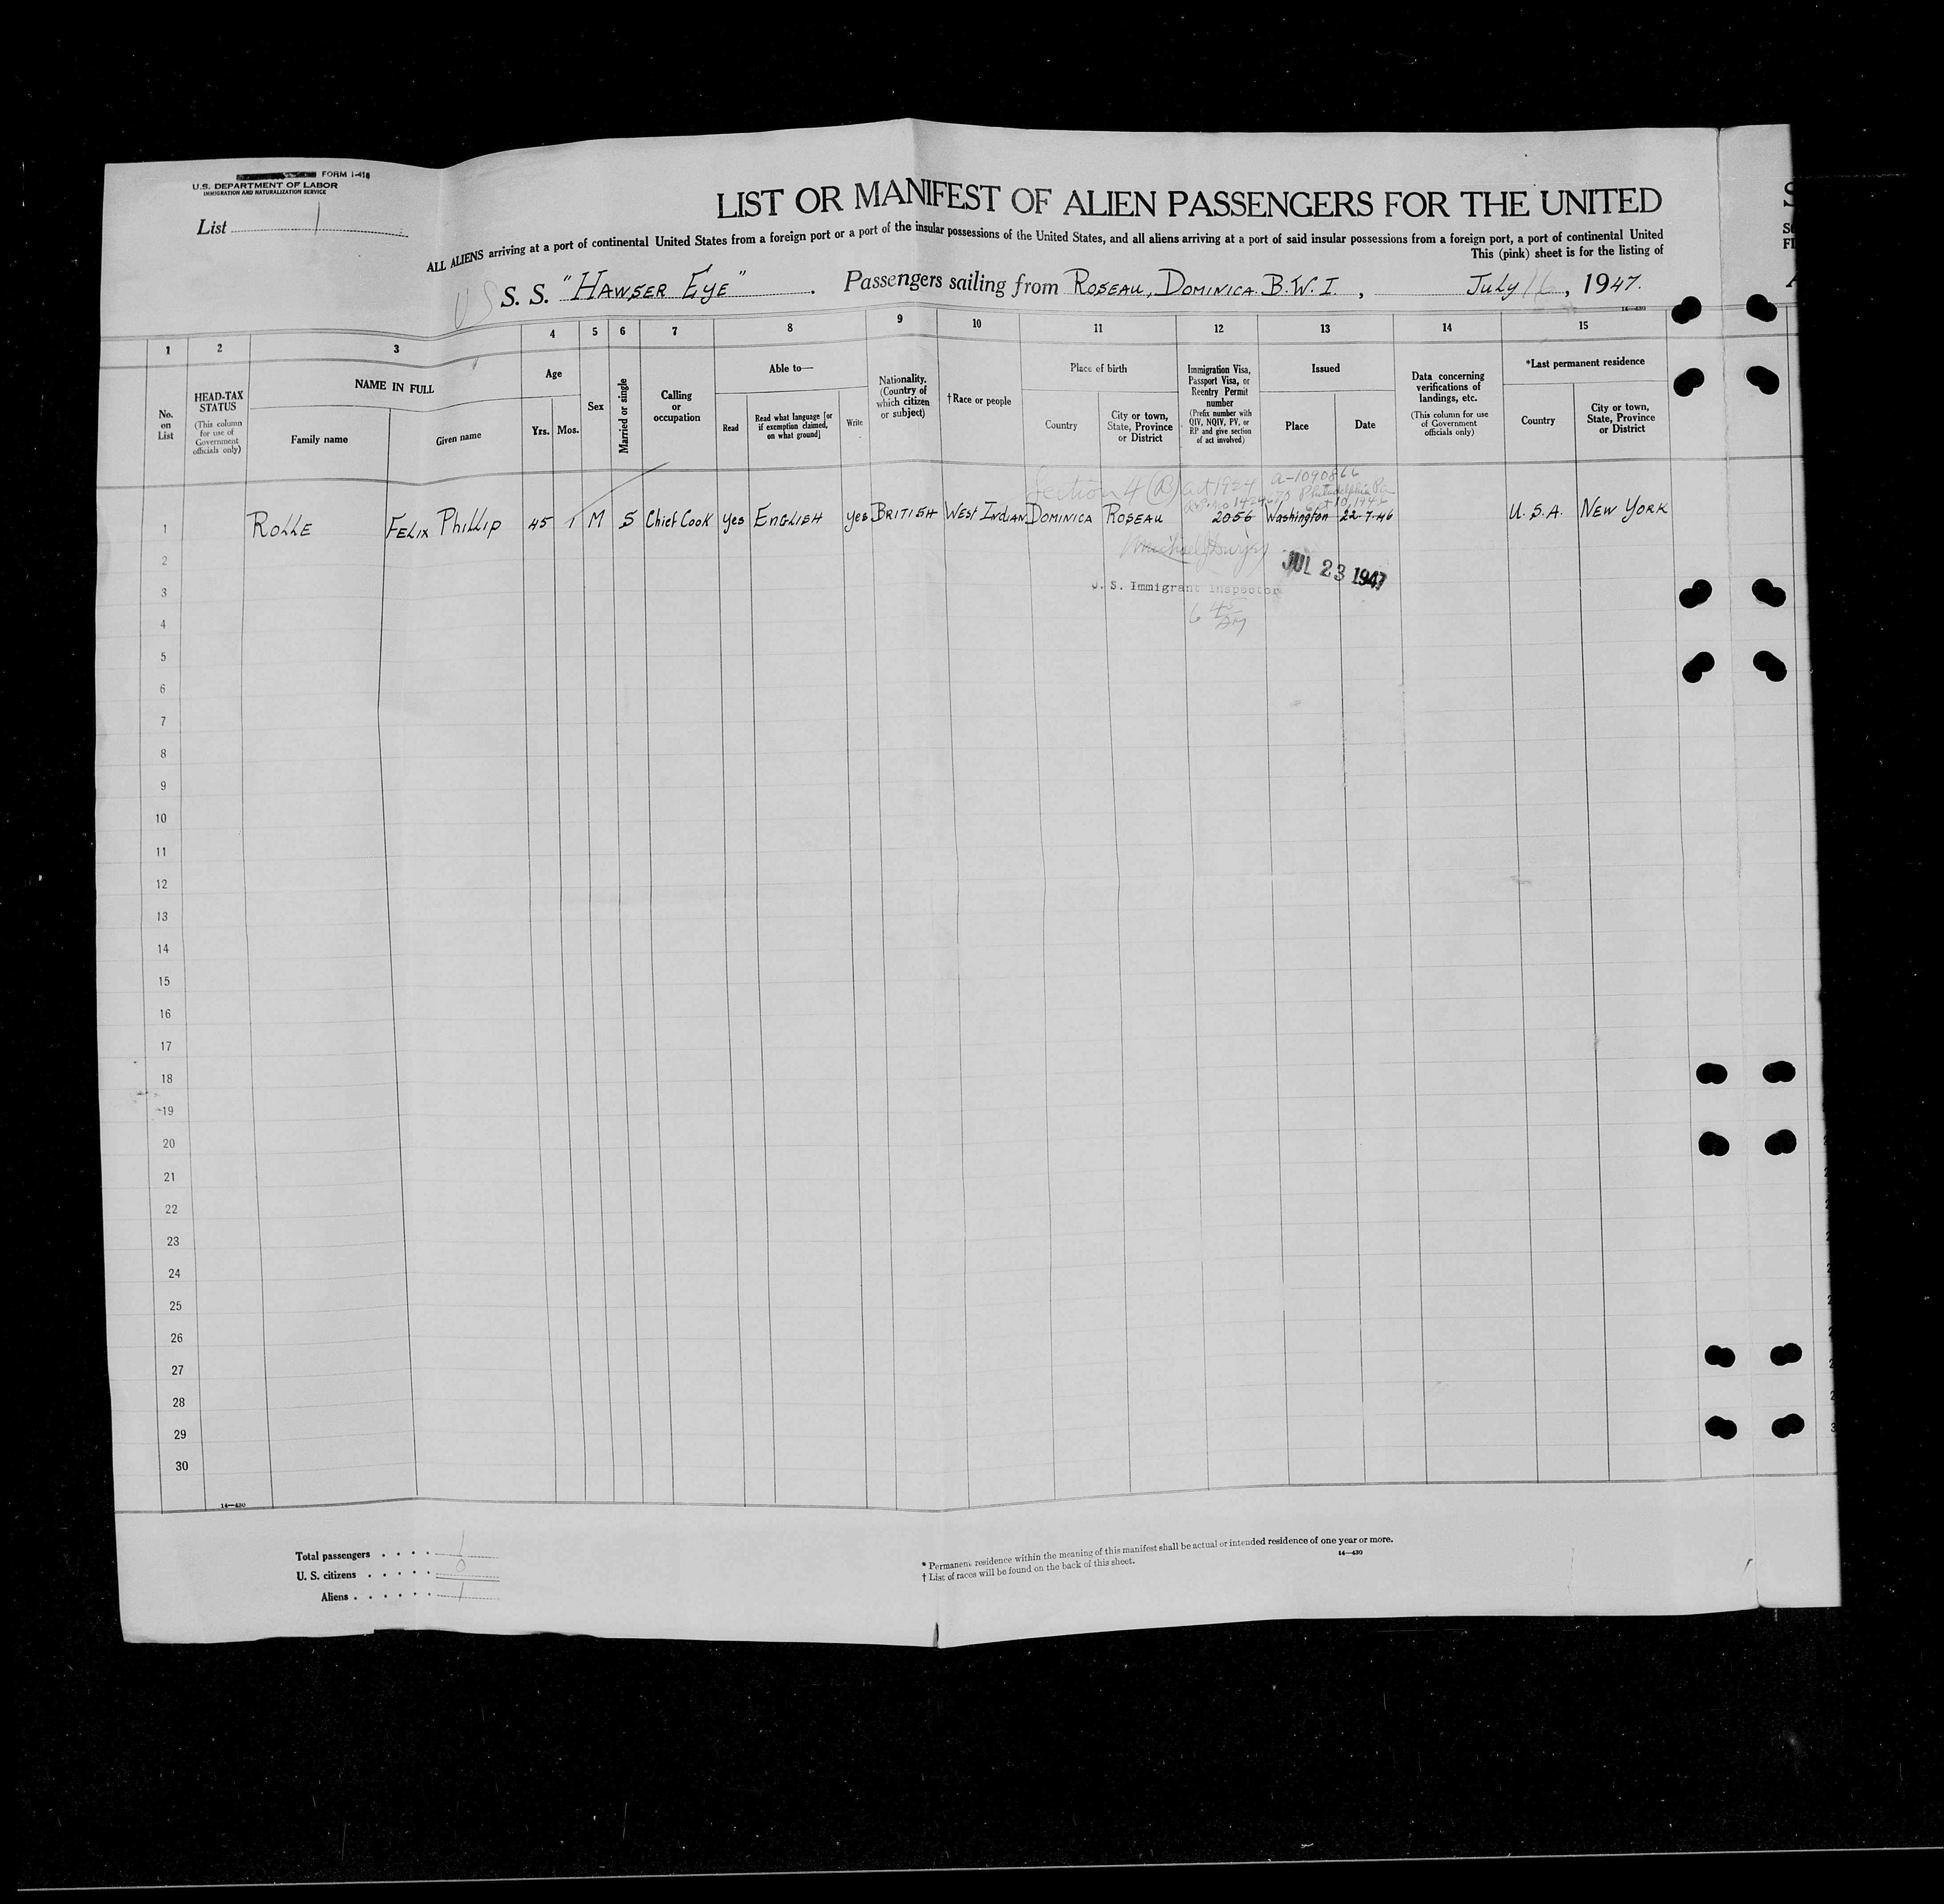 FORM I-418
U.S. DEPARTMENT OF LABOR
IMMIGRATION AND NATURALIZATION SERVICE
List 1
LIST OR MANIFEST OF ALIEN PASSENGERS FOR THE UNITED
ALL ALIENS arriving at a port of continental United States from a foreign port or a port of the insular possessions of the United States, and all aliens arriving at a port of said insular possessions from a foreign port, a port of continental United
This (pink) sheet is for the listing of
US S. S. "HAWSER EYE". Passengers sailing from ROSEAU, DOMINICA. B.W.I., July 16, 1947.
14—430
1 2 3 4 5 6 7 8 9 10 11 12 13 14 15
No. on List
HEAD-TAX STATUS
(This column for use of Government officials only)
NAME IN FULL
Family name
Given name
Age
Yrs. Mos.
Sex
Married or single
Calling or occupation
Able to—
Read
Read what language [or if exemption claimed, on what ground]
Write
Nationality. (Country of which citizen or subject)
†Race or people
Place of birth
Country
City or town, State, Province or District
Immigration Visa, Passport Visa, or Reentry Permit number
(Prefix number with QIV, NQIV, PV, or RP and give section of act involved)
Issued
Place
Date
Data concerning verifications of landings, etc.
(This column for use of Government officials only)
*Last permanent residence
Country
City or town, State, Province or District
Section 4 (B) Act 1924 A-109086
Philadelphia Pa
1 ROLLE FELIX Phillip 45 1 M S Chief Cook yes ENGLISH yes BRITISH WEST INDIAN DOMINICA ROSEAU 2056 Washington 22-7-46 U.S.A. NEW YORK
2
JUL 23 1947
3 U. S. Immigrant Inspector
4 6 45 AM
5
6
7
8
9
10
11
12
13
14
15
16
17
18
19
20
21
22
23
24
25
26
27
28
29
30
14—430
Total passengers . . . . 1
U. S. citizens . . . . . 0
Aliens . . . . . . 1
* Permanent residence within the meaning of this manifest shall be actual or intended residence of one year or more.
† List of races will be found on the back of this sheet.
14—430